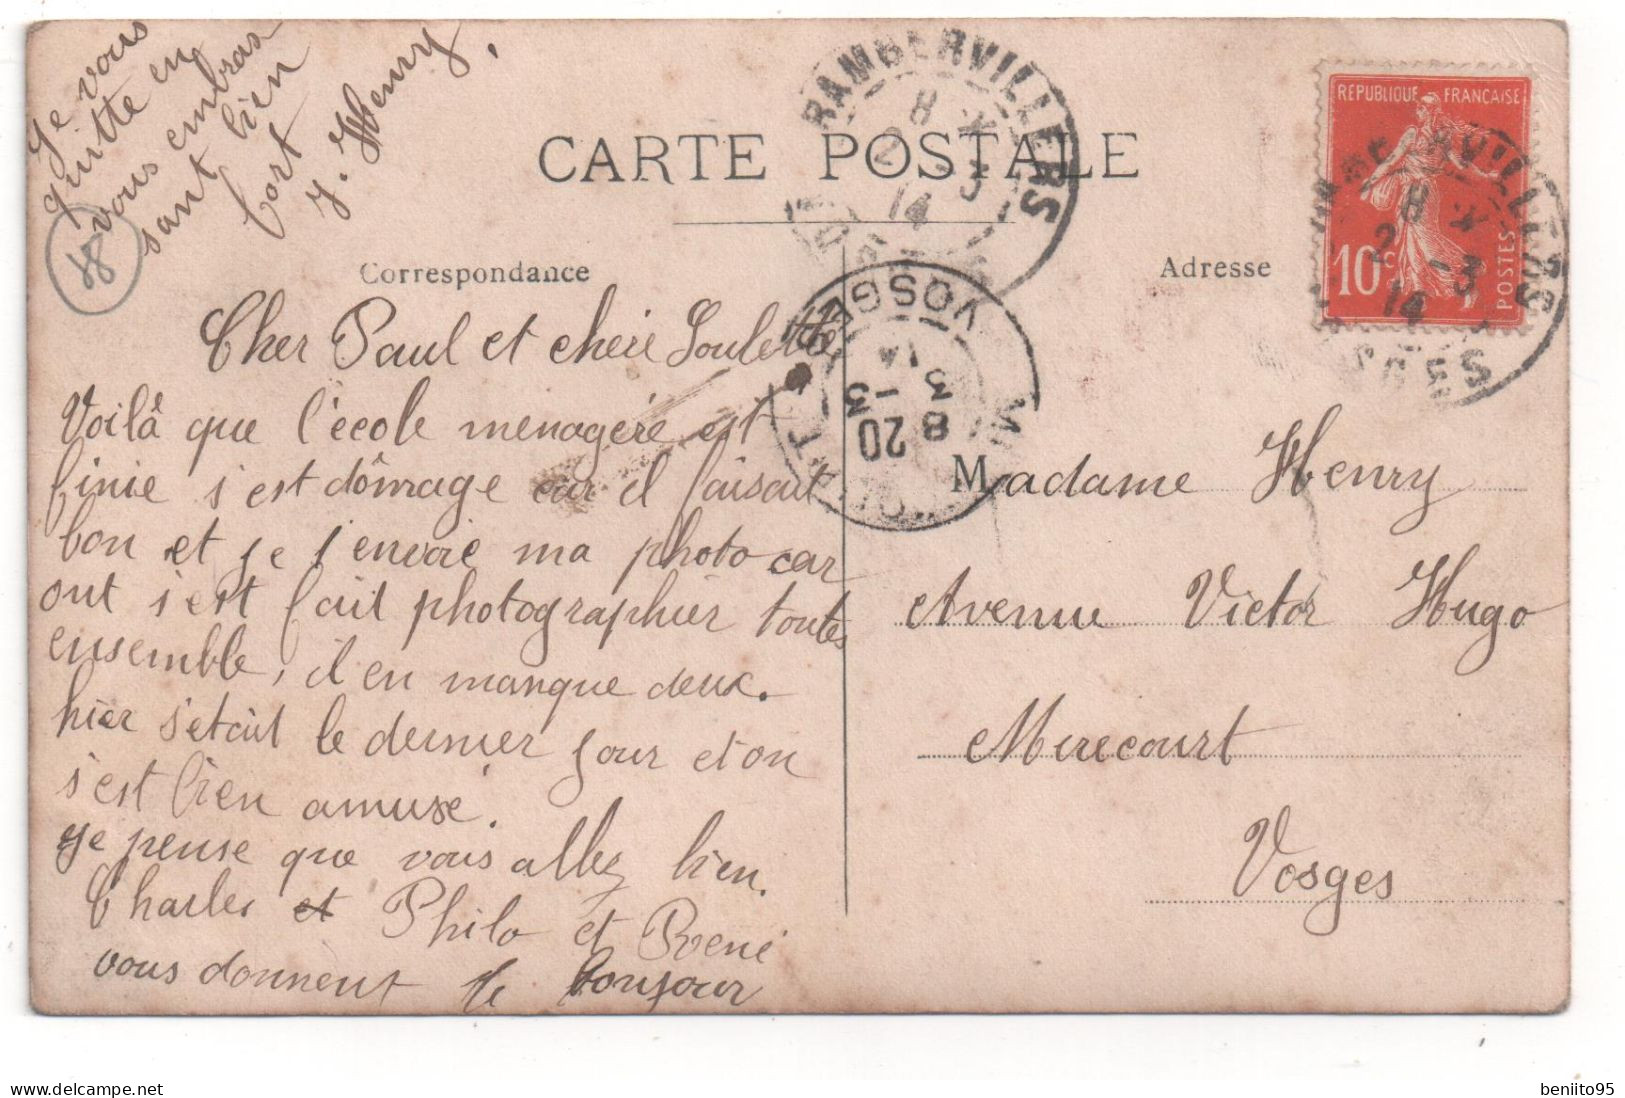 Je vous
quitte en
vous embras
sant bien
fort
J. Henry,
18
CARTE POSTALE
Correspondance
Adresse
RAMBERVILLERS
8
2 -3
14
VOSGES
20
8 -3
3
14
REPUBLIQUE FRANÇAISE
10c
POSTES
Cher Paul et chère Loulette
Voilà que l'école menagère est
finie s'est dômage car il faisait
bon et je t'envoie ma photo car
ont s'est fait photographier toutes
ensemble, il en manque deux.
hier s'etait le dernier jour et on
s'est bien amusé.
Je pense que vous allez bien.
Charles et Philo et René
vous donnent le bonjour
Madame Henry
Avenue Victor Hugo
Mirecourt
Vosges
benito95